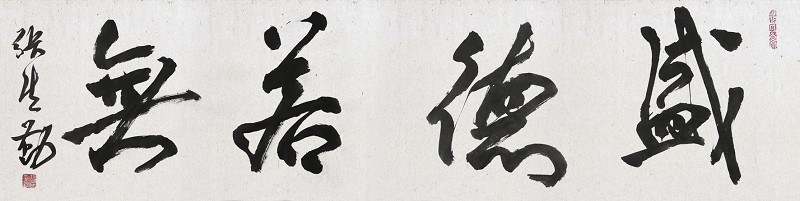 盛德若無
張生勤